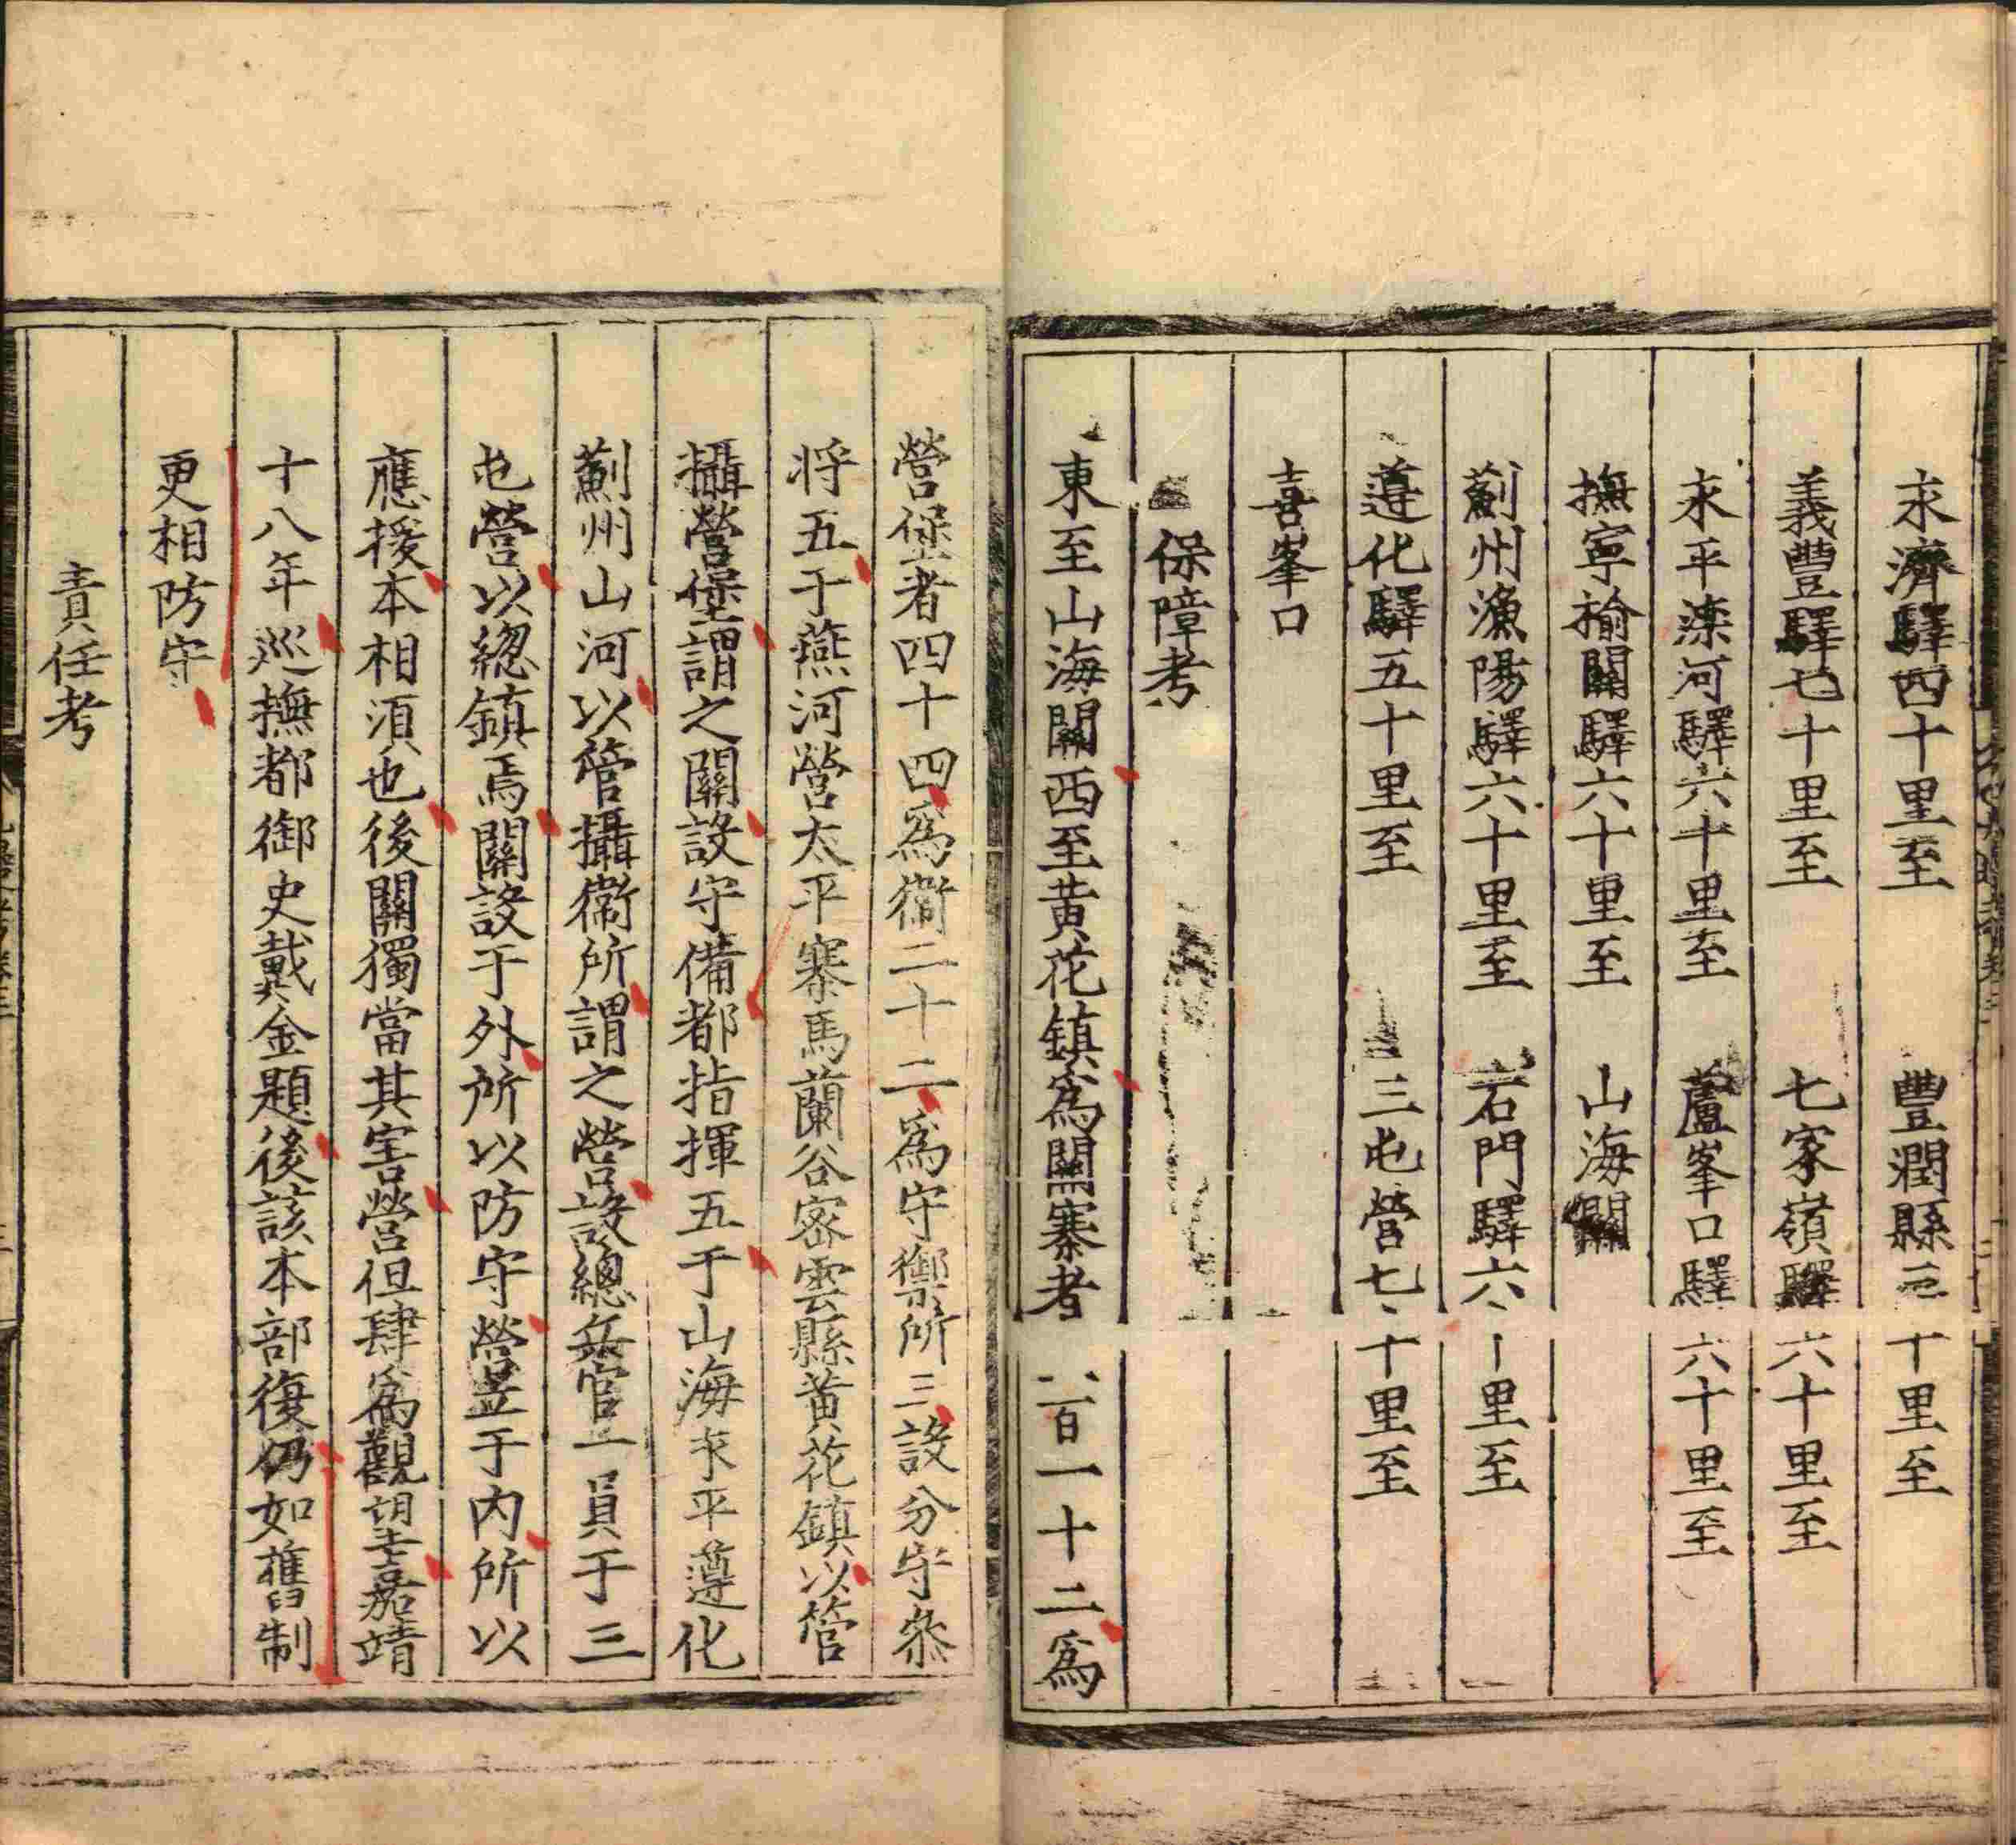 永濟驛四十里至　豐潤縣二十里至
義豐驛七十里至　七家嶺驛六十里至
永平灤河驛六十里至　蘆峯口驛六十里至
撫寧榆關驛六十里至　山海關
薊州漁陽驛六十里至　石門驛六十里至
遵化驛五十里至　三屯營七十里至
喜峯口
保障考
東至山海關西至黄花鎮為關寨者二百一十二為
營堡者四十四為衛二十二為守禦所三設分守叅
将五于燕河營太平寨馬蘭谷密雲縣黄花鎮以管
攝營堡謂之關設守備都指揮五于山海永平遵化
薊州山河以管攝衛所謂之營設總兵官一員于三
屯營以總鎮焉關設于外所以防守營竖于内所以
應援本相須也後關獨當其害營但肆為觀望嘉靖
十八年廵撫都御史戴金題後該本部復仍如舊制
更相防守
責任考